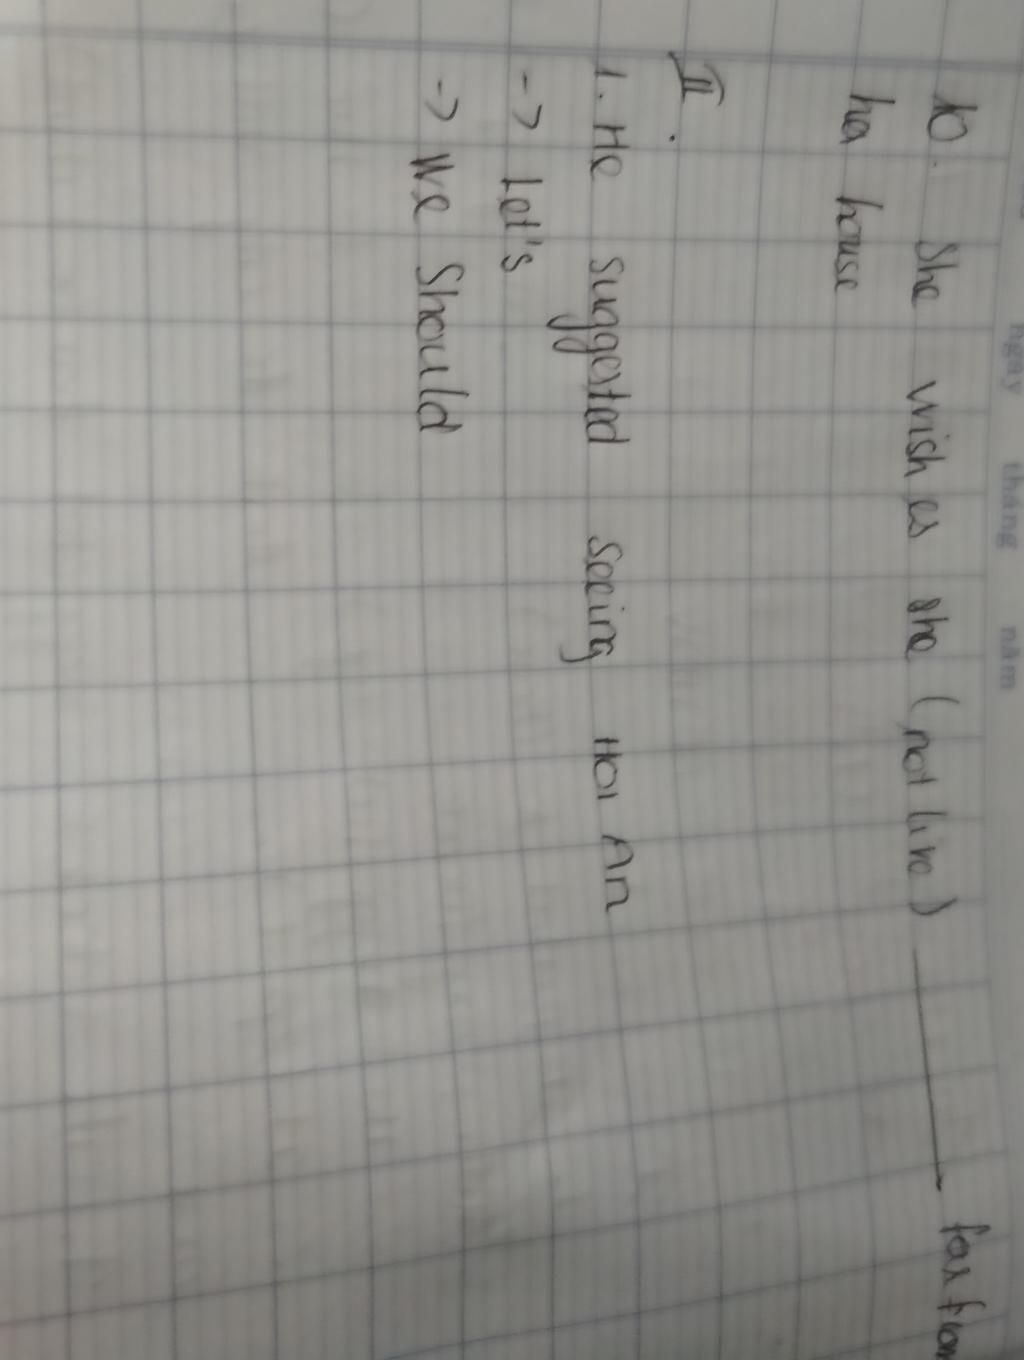 ngày tháng năm
10. She wishes she (not live) ——— far from
her house
II.
1. He suggested seeing Hoi An
-> Let's
-> We Should